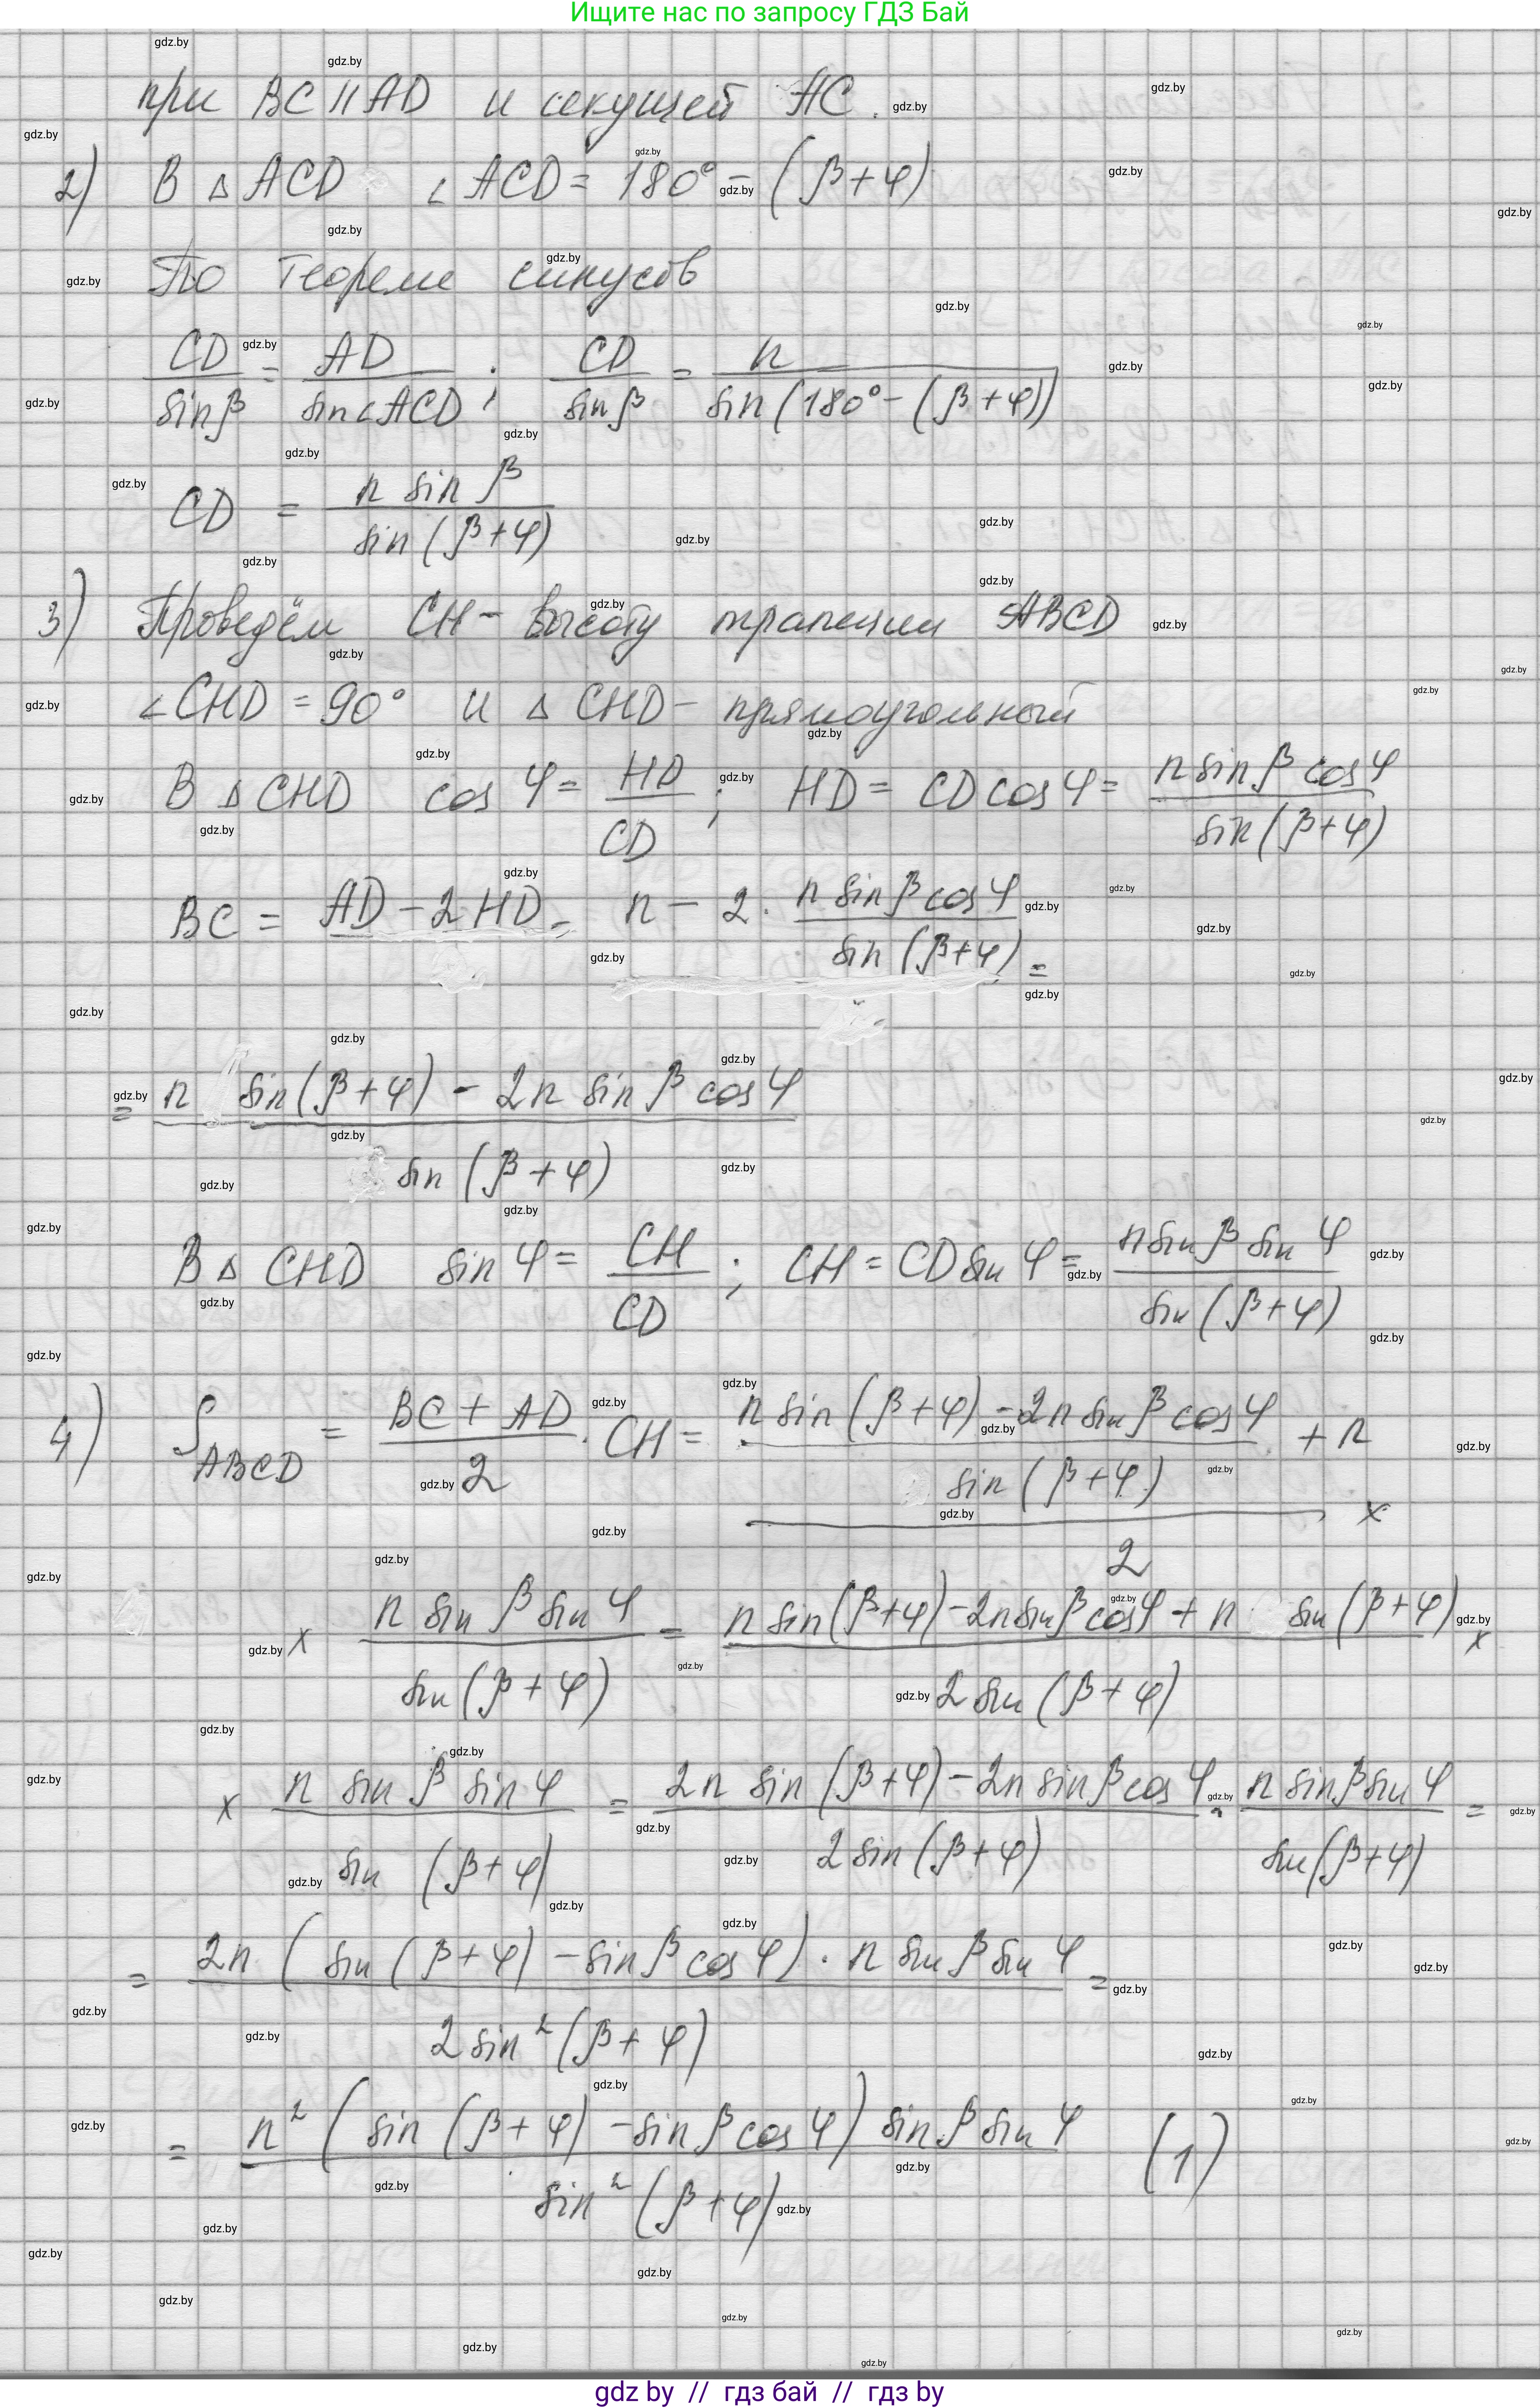 Ищите нас по запросу ГДЗ Бай
при BC || AD и секущей AC.
2) В △ ACD ∠ ACD = 180° - (β + φ)
По теореме синусов
CD / sin β = AD / sin ∠ACD ; CD / sin β = n / sin (180° - (β + φ))
CD = n sin β / sin (β + φ)
3) Проведём CH - высоту трапеции ABCD
∠CHD = 90° и △ CHD - прямоугольный
В △ CHD cos φ = HD / CD ; HD = CD cos φ = n sin β cos φ / sin (β + φ)
BC = AD - 2 HD = n - 2 · n sin β cos φ / sin (β + φ) =
= n sin (β + φ) - 2n sin β cos φ / sin (β + φ)
В △ CHD sin φ = CH / CD ; CH = CD sin φ = n sin β sin φ / sin (β + φ)
4) S ABCD = BC + AD / 2 · CH = n sin (β + φ) - 2n sin β cos φ / sin (β + φ) + n / 2 ×
× n sin β sin φ / sin (β + φ) = n sin (β + φ) - 2n sin β cos φ + n sin (β + φ) / 2 sin (β + φ) ×
× n sin β sin φ / sin (β + φ) = 2n sin (β + φ) - 2n sin β cos φ / 2 sin (β + φ) · n sin β sin φ / sin (β + φ) =
= 2n (sin (β + φ) - sin β cos φ) · n sin β sin φ / 2 sin² (β + φ) =
= n² (sin (β + φ) - sin β cos φ) sin β sin φ / sin² (β + φ) (1)
gdz by // гдз бай // гдз by